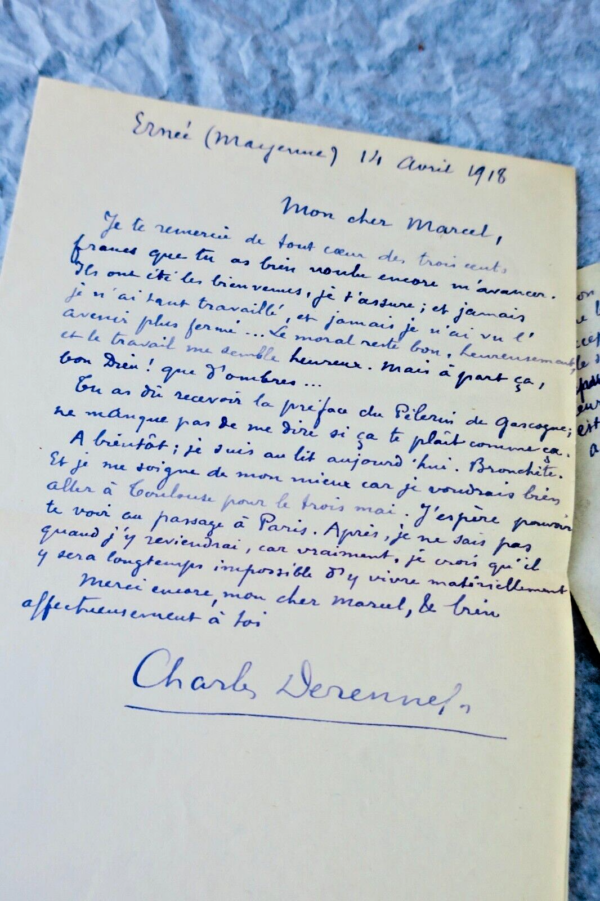 Ernée (Mayenne) 14 Avril 1918
Mon cher Marcel,
Je te remercie de tout cœur des trois cents
francs que tu as bien voulu encore m'avancer.
Ils ont été les bienvenus, je t'assure; et jamais
je n'ai tant travaillé, et jamais je n'ai vu l'
avenir plus fermé... Le moral reste bon, heureusement,
et le travail me semble heureux. Mais à part ça,
bon Dieu! que d'ombres...
Tu as dû recevoir la préface du Pèlerin de Gascogne;
ne manque pas de me dire si ça te plaît comme ça.
A bientôt; je suis au lit aujourd'hui. Bronchite.
Et je me soigne de mon mieux car je voudrais bien
aller à Toulouse pour le trois mai. J'espère pouvoir
te voir au passage à Paris. Après, je ne sais pas
quand j'y reviendrai, car vraiment, je crois qu'il
y sera longtemps impossible d'y vivre matériellement
Merci encore, mon cher Marcel, & bien
affectueusement à toi
Charles Derennes